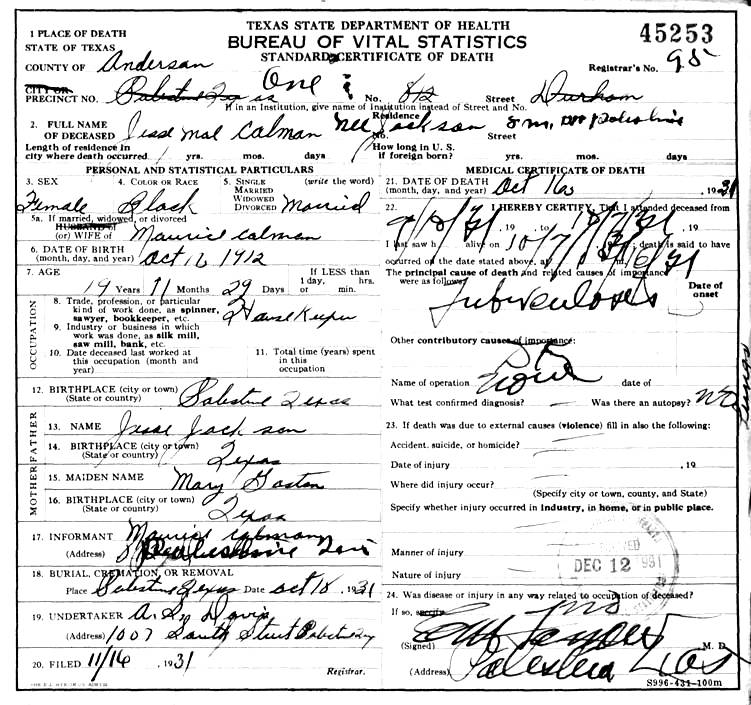 TEXAS STATE DEPARTMENT OF HEALTH
BUREAU OF VITAL STATISTICS
STANDARD CERTIFICATE OF DEATH
45253
1 PLACE OF DEATH
STATE OF TEXAS
COUNTY OF Anderson
Registrar's No. 95
CITY OR
PRECINCT NO. One No. 812 Street Durham
If in an Institution, give name of Institution instead of Street and No.
2. FULL NAME OF DECEASED Jesse Mae Calman Nee Jackson
Residence No. Street
Length of residence in city where death occurred yrs. mos. days
How long in U. S. if foreign born? yrs. mos. days
PERSONAL AND STATISTICAL PARTICULARS
3. SEX Female
4. COLOR OR RACE Black
5. SINGLE MARRIED WIDOWED DIVORCED (write the word) Married
5a. If married, widowed, or divorced
HUSBAND of
(or) WIFE of Maurice Calman
6. DATE OF BIRTH
(month, day, and year) Oct 1912
7. AGE 19 Years 11 Months 29 Days If LESS than 1 day, hrs. or min.
OCCUPATION
8. Trade, profession, or particular kind of work done, as spinner, sawyer, bookkeeper, etc. House Keeper
9. Industry or business in which work was done, as silk mill, saw mill, bank, etc.
10. Date deceased last worked at this occupation (month and year)
11. Total time (years) spent in this occupation
12. BIRTHPLACE (city or town)
(State or country) Palestine Texas
FATHER
13. NAME Jesse Jackson
14. BIRTHPLACE (city or town)
(State or country) Texas
MOTHER
15. MAIDEN NAME Mary Gaston
16. BIRTHPLACE (city or town)
(State or country) Texas
17. INFORMANT Maurice Calman
(Address)
18. BURIAL, CREMATION, OR REMOVAL
Place Palestine Texas Date Oct 18, 1931
19. UNDERTAKER Davis
(Address) 1007 South Street
20. FILED 11/16, 1931 Registrar.
MEDICAL CERTIFICATE OF DEATH
21. DATE OF DEATH
(month, day, and year) Oct 16, 1931
22. I HEREBY CERTIFY, That I attended deceased from
, 19 , to , 19
I last saw h alive on 10/7 , 19 ; death is said to have
occurred on the date stated above, at m.
The principal cause of death and related causes of importance were as follows: Date of onset
Tuberculosis
Other contributory causes of importance:
Name of operation None date of
What test confirmed diagnosis? Was there an autopsy? no
Lungs
23. If death was due to external causes (violence) fill in also the following:
Accident, suicide, or homicide?
Date of injury , 19
Where did injury occur?
(Specify city or town, county, and State)
Specify whether injury occurred in industry, in home, or in public place.
Manner of injury
Nature of injury
DEC 12 1931
24. Was disease or injury in any way related to occupation of deceased?
If so, specify no
(Signed) M. D.
(Address) Palestine Texas
S996-431-100m